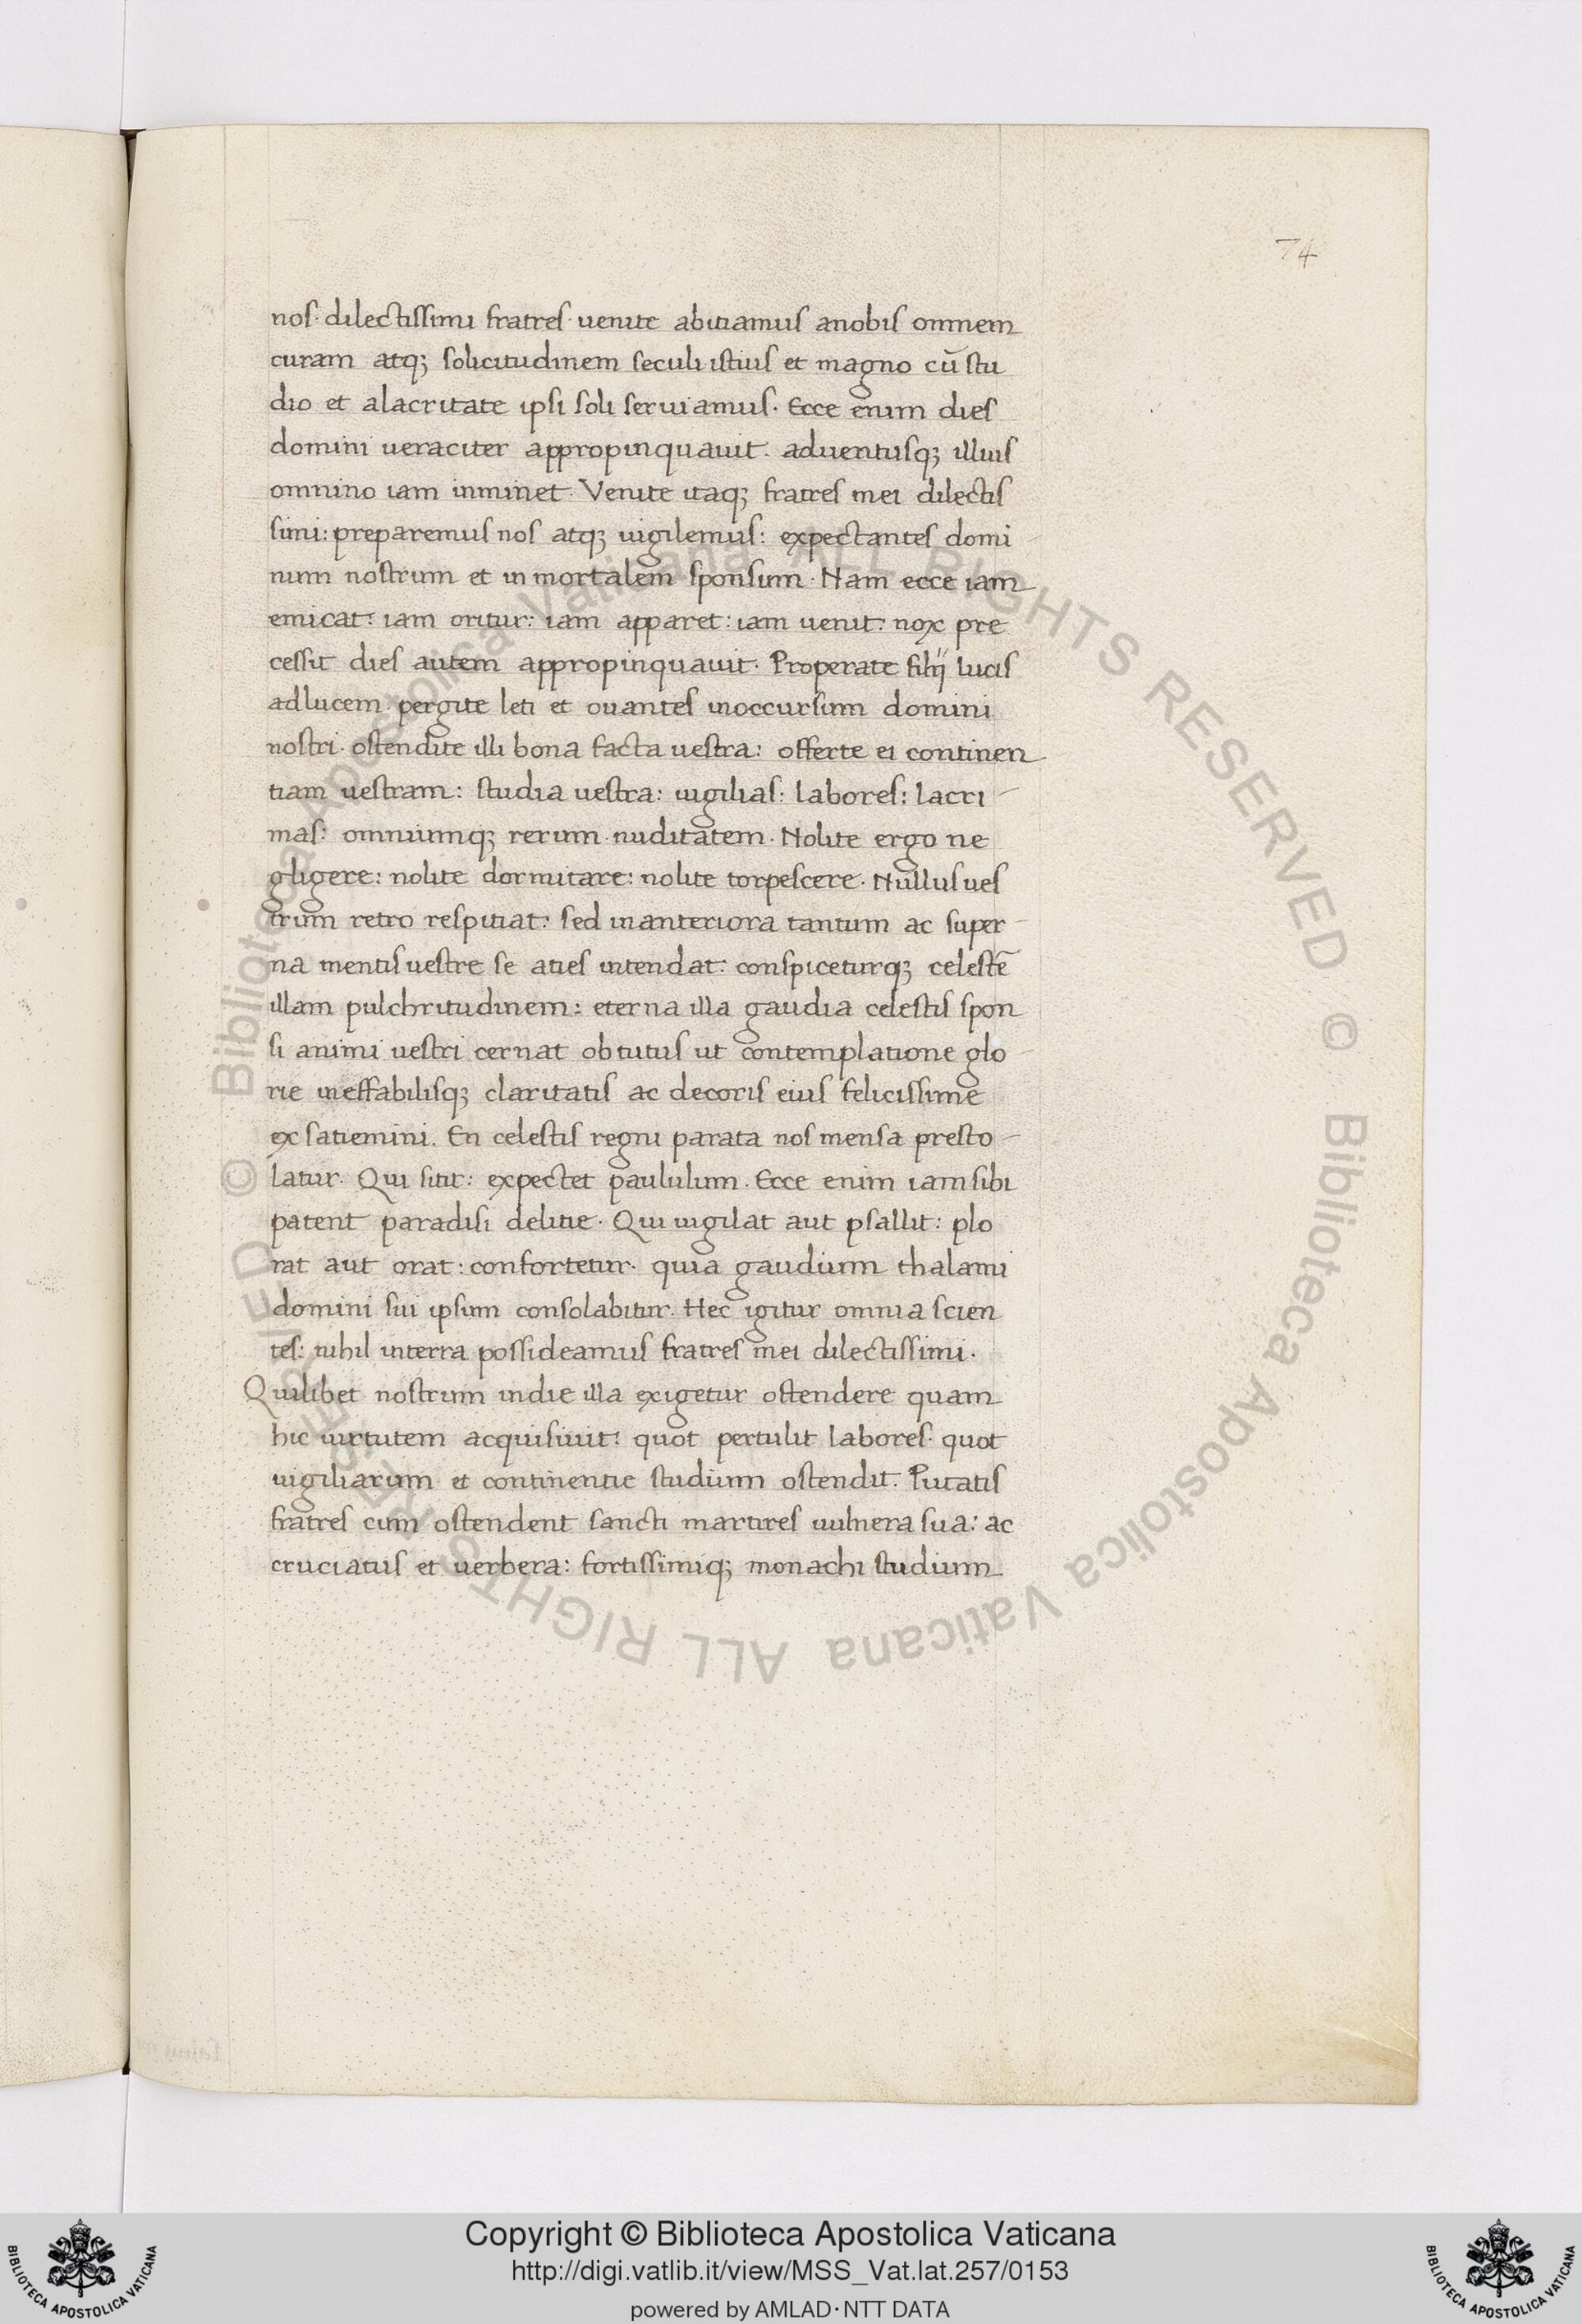 74
nos· dilectissimi fratres· uenite abitiamus anobis omnem
curam atq; solicitudinem seculi istius et magno cū stu
dio et alacritate ipsi soli seruiamus· Ecce enim dies
domini ueraciter appropinquauit· aduentusq; illius
omnino iam inminet· Venite itaq; fratres mei dilectis
simi: preparemus nos atq; uigilemus: expectantes domi
num nostrum et inmortalem sponsum· Nam ecce iam
emicat: iam oritur: iam apparet: iam uenit: nox pre
cessit dies autem appropinquauit· Properate filij lucis
adlucem· pergite leti et ouantes inoccursum domini
nostri· ostendite illi bona facta uestra: offerte ei continen
tiam uestram: studia uestra: uigilias: labores: lacri-
mas: omniumq; rerum nuditatem· Nolite ergo ne
gligere: nolite dormitare: nolite torpescere· Nullus ues
trum retro respitiat: sed inanteriora tantum ac super-
na mentis uestre se aties intendat: conspiceturq; celestē
illam pulchritudinem: eterna illa gaudia celestis spon
si animi uestri cernat obtutus ut contemplatione glo-
rie ineffabilisq; claritatis ac decoris eius felicissime
exsatiemini. En celestis regni parata nos mensa presto-
latur· Qui sitit: expectet paululum· Ecce enim iam sibi
patent paradisi delitie· Qui uigilat aut psallit: plo
rat aut orat: confortetur· quia gaudium thalami
domini sui ipsum consolabitur· Hec igitur omnia scien
tes: nihil interra possideamus fratres mei dilectissimi·
Quilibet nostrum indie illa exigetur ostendere quam
hic uirtutem acquisiuit: quot pertulit labores· quot
uigiliarum et continentie studium ostendit· Putatis
fratres cum ostendent sancti martires uulnera sua: ac
cruciatus et uerbera: fortissimiq; monachi studium
© Biblioteca Apostolica Vaticana ALL RIGHTS RESERVED © Biblioteca Apostolica Vaticana ALL RIGHTS RESERVED
Copyright © Biblioteca Apostolica Vaticana
http://digi.vatlib.it/view/MSS_Vat.lat.257/0153
powered by AMLAD·NTT DATA
BIBLIOTECA APOSTOLICA VATICANA
BIBLIOTECA APOSTOLICA VATICANA